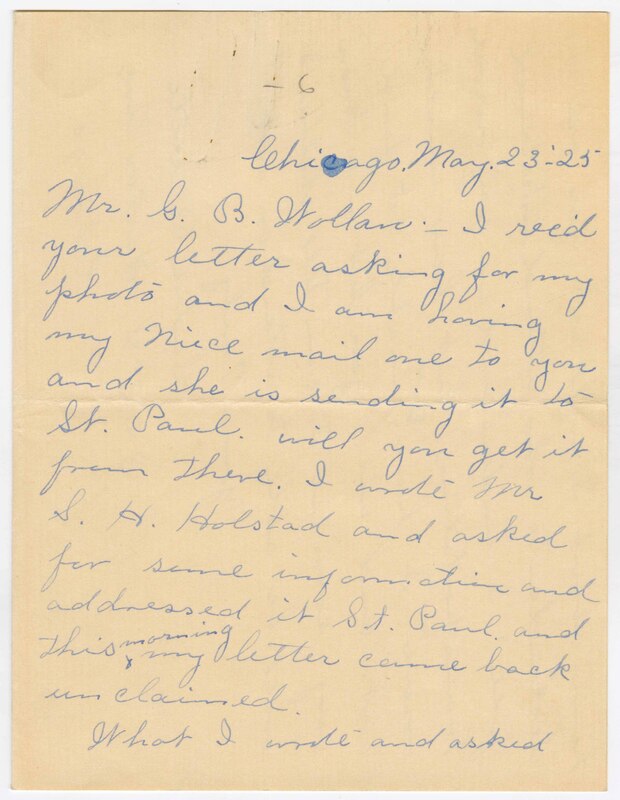 - 6
Chicago, May. 23-25
Mr. G. B. Wollan. - I rec'd
your letter asking for my
photo and I am having
my niece mail one to you
and she is sending it to
St. Paul. will you get it
from there. I wrote Mr
S. H. Holstad and asked
for some information and
addressed it St. Paul. and
this morning my letter came back
unclaimed.
What I wrote and asked